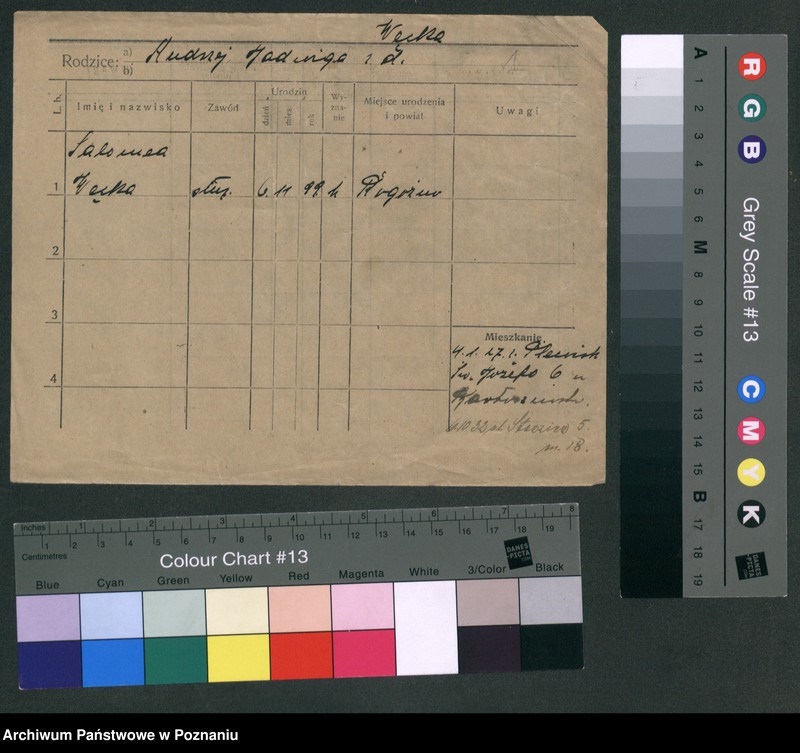 Węcka
Rodzice: a) Andrzej Jadwiga z d.
b)
L. b.
Imię i nazwisko
Zawód
Urodzin
dzień
mies.
rok
Wy-
zna-
nie
Miejsce urodzenia
i powiat
Uwagi
Salomea
1 Węcka służ. 6 11 99 k Rogoźno
2
3
4
Mieszkanie
4.1.27. 
Św. Józefa 6 u
4.10.32 ul. 5.
m. 18.
Inches 1 2 3 4 5 6 7 8
Centimetres 1 2 3 4 5 6 7 8 9 10 11 12 13 14 15 16 17 18 19
Colour Chart #13
DANES
PICTA
.COM
Blue Cyan Green Yellow Red Magenta White 3/Color Black
A 1 2 3 4 5 6 M 8 9 10 11 12 13 14 15 B 17 18 19
R G B
Grey Scale #13
C M Y K
DANES
PICTA
.COM
Archiwum Państwowe w Poznaniu